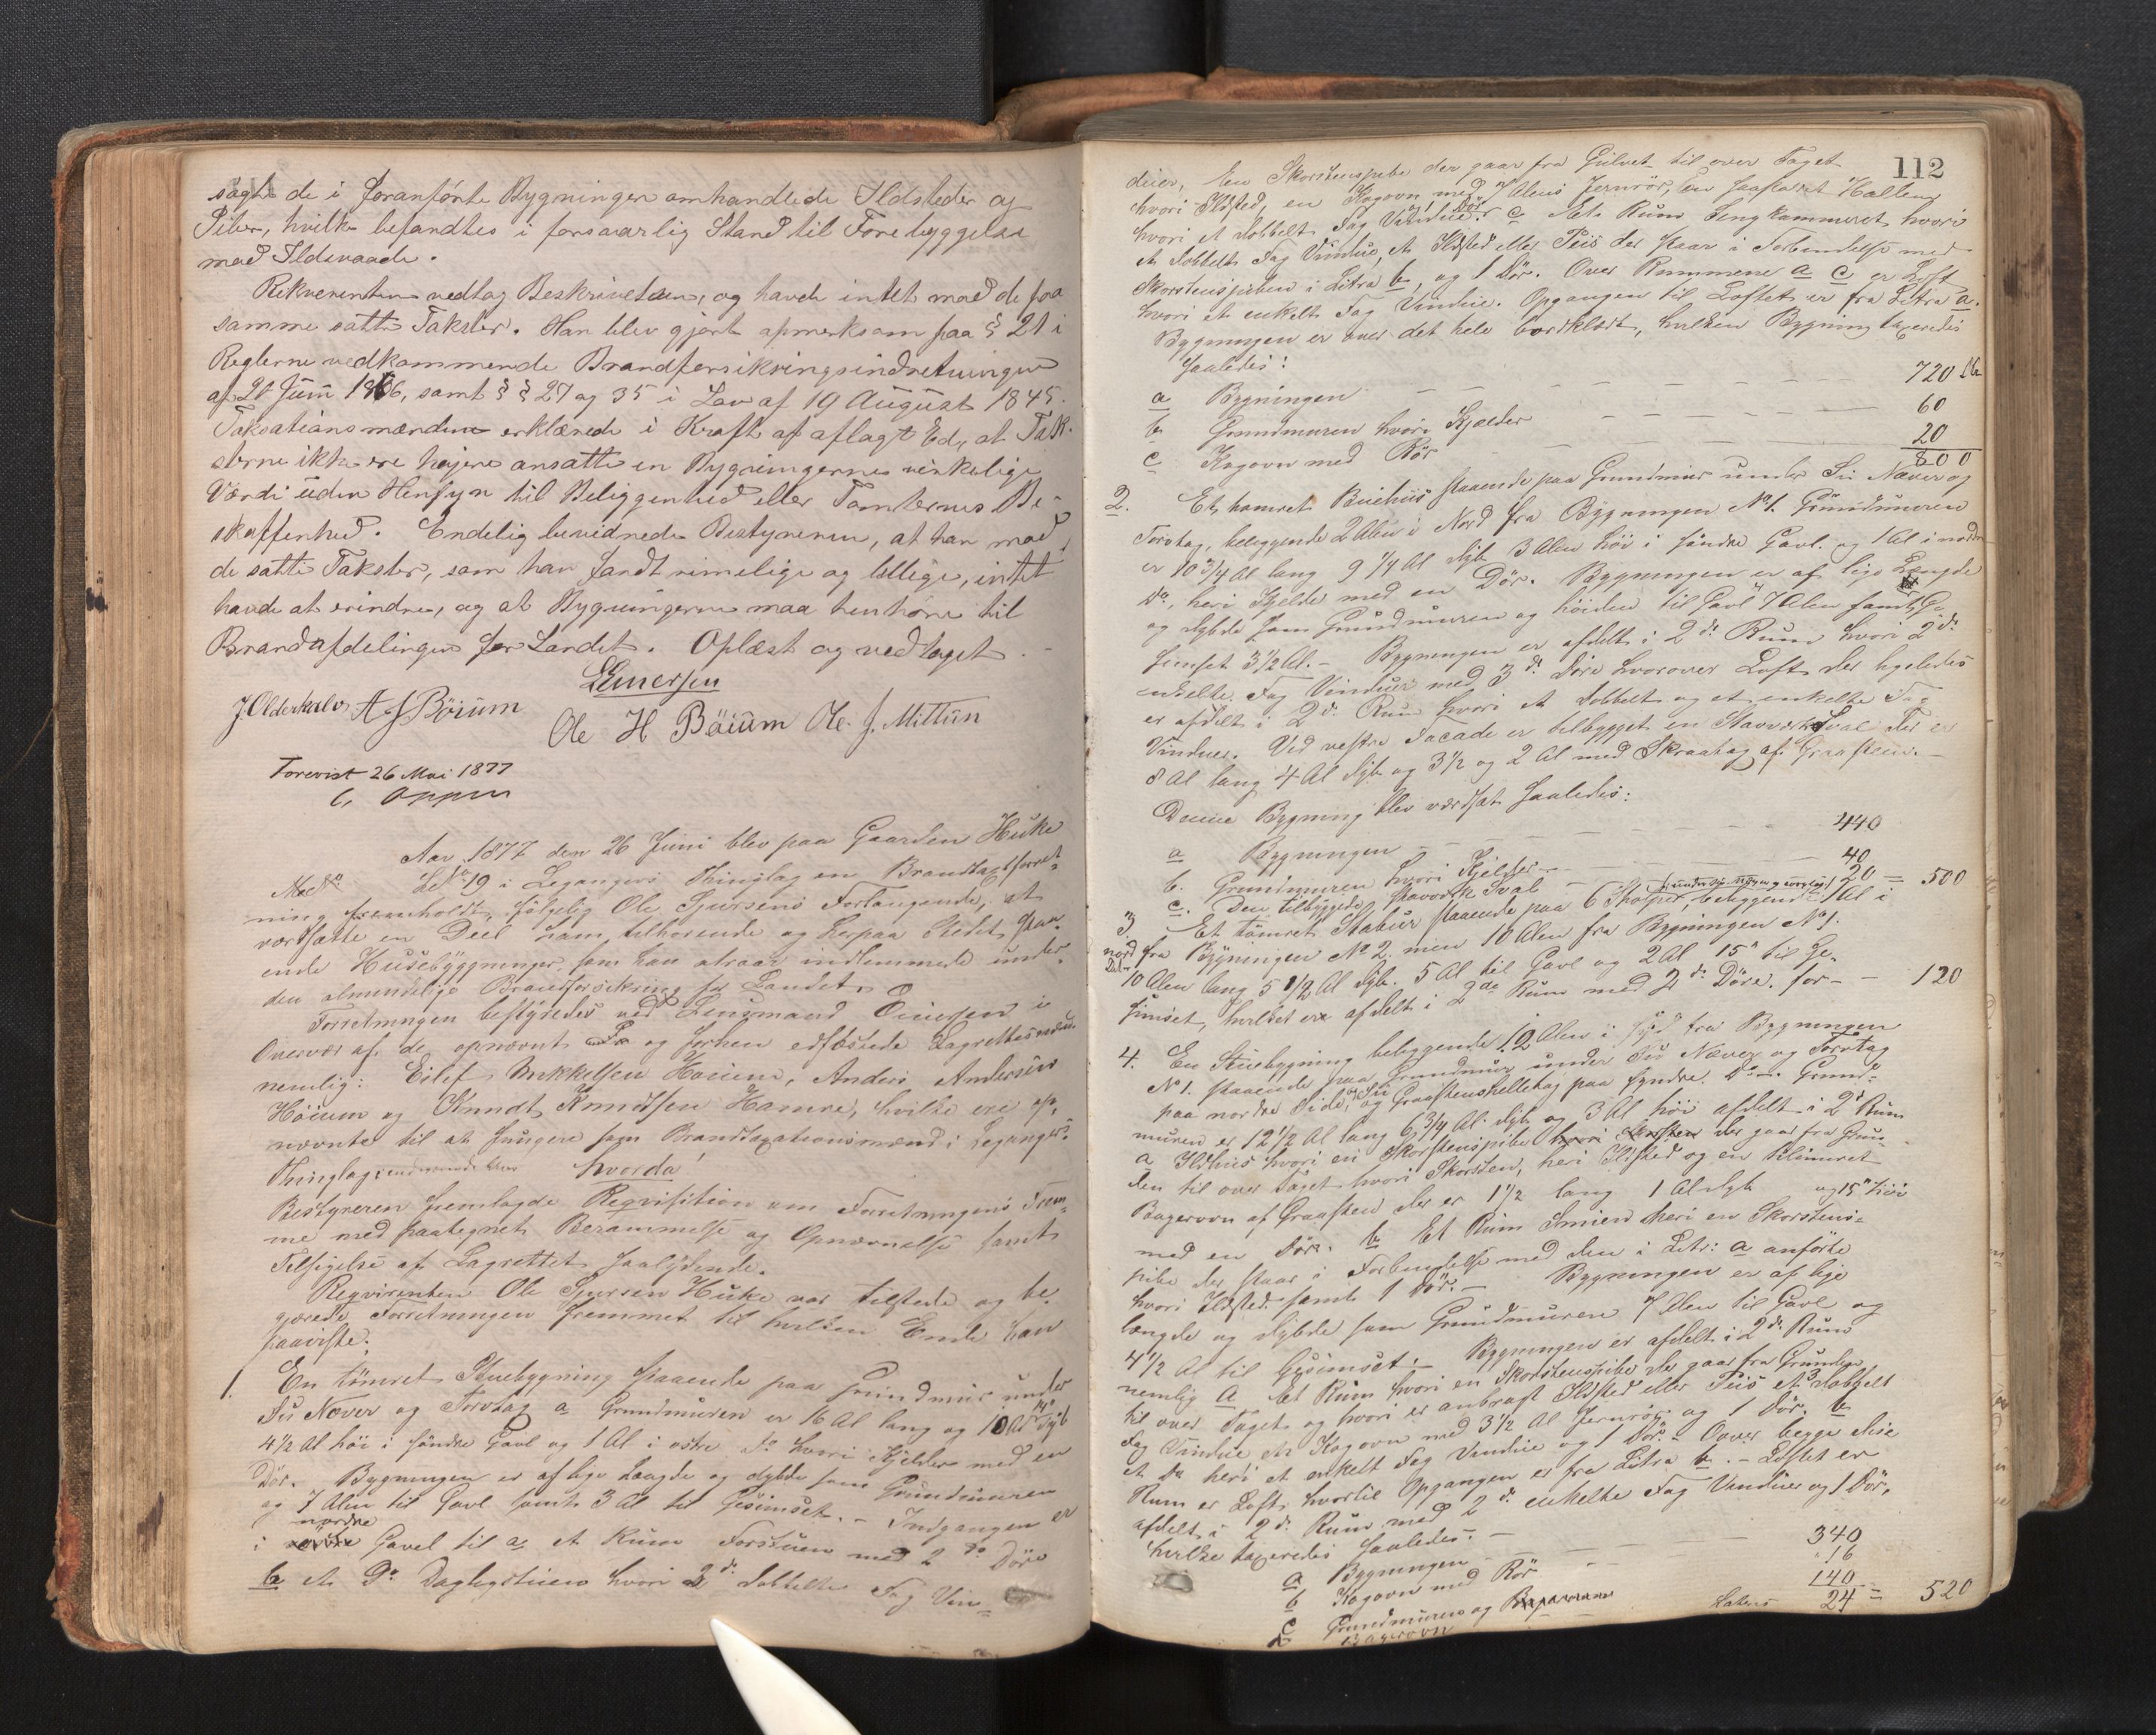 sagte de i foranførte Bygningen omhandlede Ildsteder og
Piber, hvilke befandtes i forsvarlig Stand til Forebyggelse
mod Ildsvaade.
Rekvirenten vedtog Beskrivelsen, og havde intet mod de paa
samme satte Takster. Han blev gjort opmerksom paa § 21 i
Reglerne vedkommende Brandforsikringsindretningen
af 20 Juni 1866, samt § § 27 og 35 i Lov af 19 August 1845.
Taksationsmændene erklærede i Kraft af aflagt Ed, at Tak-
sterne ikke ere højere ansatte en Bygningernes virkelige
Værdi uden Hensyn til Beliggenhed eller Tomternes Be-
skaffenhed. Endelig bevidnede Bestyreren, at han mod
de satte Takster, som han fandt rimelige og billige, intet
havde at erindre, og at Bygningerne maa henhøre til
Brandafdelingen for Landet. Oplæst og vedtaget. -
LEinersen
J Olderkalv A J Böium Ole H Böium Ole J. Mittun
Forevist 26 Mai 1877
C. Oppen
Aar 1877 den 26 Juni blev paa Gaarden Huke
Mat No LNo 19 i Leganger Thinglag en Brandtaxtforret-
ning fremholdt, følgelig Ole Sjursens Forlangende, at
værdsætte en Deel ham tilhørende og herpaa Stedet staa-
ende Husebygninger, som han attraar indlemmede under
den almindelige Brandforsikring for Landet.
Forretningen bestyredes ved Lensmand Einersen i
Overvær af de opnævnte og forhen edfæstede Lagrettesmænd
nemlig: Eilef Mikkelsen Høium, Anders Andersen
Høium og Knudt Knudtsen Hamre, hvilke ere op-
nævnte til at fungere som Brandtaxationsmænd i Leganger
Thinglag; hvorda!
Bestyreren fremlagde Reqvisition om Forretningens Frem-
me med paategnet Berammelse og Opnævnelse samt
Tilsigelse af Lagrettet saalydende.
Reqvirenten Ole Sjursen Huke var tilstede og be-
gjærede Forretningen fremmet til hvilken Ende han
paaviste:
1. En tømret Stuebygning staaende paa Grundmur under
Su Næver og Torvtag a Grundmuren er 16 Al lang og 10 Al Dyb
4½ Al høi i søndre Gavl og 1 Al i østre Do hvori Kjelder med en
Dør. Bygningen er af lige Længde og dybde som Grundmuren
og 7 Alen til Gavl samt 3 Al til Gesimset. - Indgangen er
i nordre Gavel til a, et Rum Forstuen med 2 de Døre
b et Do Dagligstuen hvori 2 de dobbelte Fag Vin-
112
duer, En Skorstenspibe der gaar fra Gulvet til over Taget
hvori Ildsted, en Kogovn med Alens Jernrør,
hvori et dobbelt Fag Vindue. c Et Rum Sengkammeret hvori
et dobbelt Fag Vindue, et Ildsted eller Peis der staar i Forbindelse med
Skorstenspiben i Litra b, og 1 Dør. Over Rummene a c er Loft
hvori et enkelt Fag Vindue. Opgangen til Loftet er fra Litra a.
Bygningen er over det hele bordklædt, hvilken Bygning taxeredes
saaledes:
a Bygningen - - - 720
b Grundmuren hvori Kjælder - - - 60
c Kogovn med Rør - - - 20
800
2. Et tømret Buehus staaende paa Grundmur under Su Næver og
Torvtag, beliggende 2 Alen i Nord fra Bygningen No 1. Grundmuren
er 10 3/4 Al lang 9 1/4 Al dyb 3 Alen høi i søndre Gavl og 1 Al i nordre
Do, heri Kjelder med en Dør. Bygningen er af lige Længde
og dybde som Grundmuren og høiden til Gavl 7 Alen samt Ge-
simset 3½ Al. - Bygningen er afdelt i 2 de Rum hvori 2 de
enkelte Fag Vinduer med 3 de Døre hvorover Loft der ligeledes
er afdelt i 2 de Rum hvori et dobbelt og et enkelte Fag
Vinduer. Ved vestre Facade er tilbygget en Stavværk Sval der er
8 Al lang 4 Al dyb og 3½ og 2 Al med Skraatag af Graasteen. -
Denne Bygning blev værdsat saaledes:
a Bygningen - - - 440
b. Grundmuren hvori Kjelder - - - 40
c. Den tilbyggede Stavværk Sval - 20 = 500
3. Et tømret Stabur staaende paa 6 Stolper, beliggende 1 Al i
nord fra Bygningen No 2. men 10 Alen fra Bygningen No 1.
10 Alen lang 5 1/2 Al dyb. 5 Al til Gavl og 2 Al 15" til Ge-
simset, hvilket er afdelt i 2 de Rum med 2 de Døre. for - - 120
4. En Stuebygning beliggende 12 Alen i Syd fra Bygningen
No 1. staaende paa Grundmur under Su Næver og Torvtag
paa nordre Side, og Graasteenshelletag paa syndre Do -. Grund-
muren er 12½ Al lang 6 3/4 Al. dyb og 3 Al høi afdelt i 2 de Rum
a Ildhus hvori en Skorstenspibe der gaar fra Grun-
den til over Taget hvori Skorsten, heri Ildsted og en tilmuret
Bagerovn af Graasten der er 1½ lang 1 Al dyb og 15" høi
med en Dør. b Et Rum Smien heri en Skorstens-
pibe der staar i Forbindelse med den i Litr: a anførte
hvori Ildsted samt 1 Dør. - Bygningen er af lige
længde og dybde som Grundmuren 7 Alen til Gavl og
4½ Al til Gesimset. - Bygningen er afdelt i 2 de Rum
nemlig a Et Rum hvori en Skorstenspibe der gaar fra Grunden
til over Taget og hvori er anbragt Ildsted eller Peis et 3 dobbelt
Fag Vindue en Kogovn med 3½ Al Jernrør og 1 Dør. b
et Do heri et enkelt Fag Vindue og 1 Dør. - Over begge disse
Rum er Loft, hvortil Opgangen er fra Litra b. - Loftet er
afdelt i 2 de Rum med 2 de enkelte Fag Vinduer og 1 Dør.
hvilke taxeredes saaledes. -
a Bygningen - - - 340
b Kogovn med Rør - - 16
c Grundmuren 140
Bagerovn Latus 24 = 520